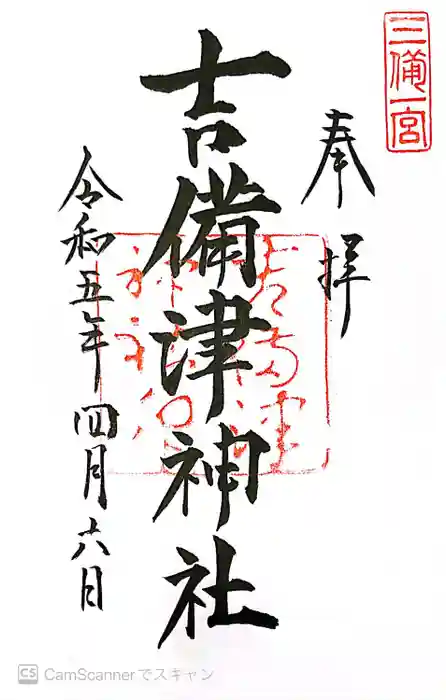 三備一宮
奉拝
吉備津神社
令和五年四月六日
CS CamScannerでスキャン